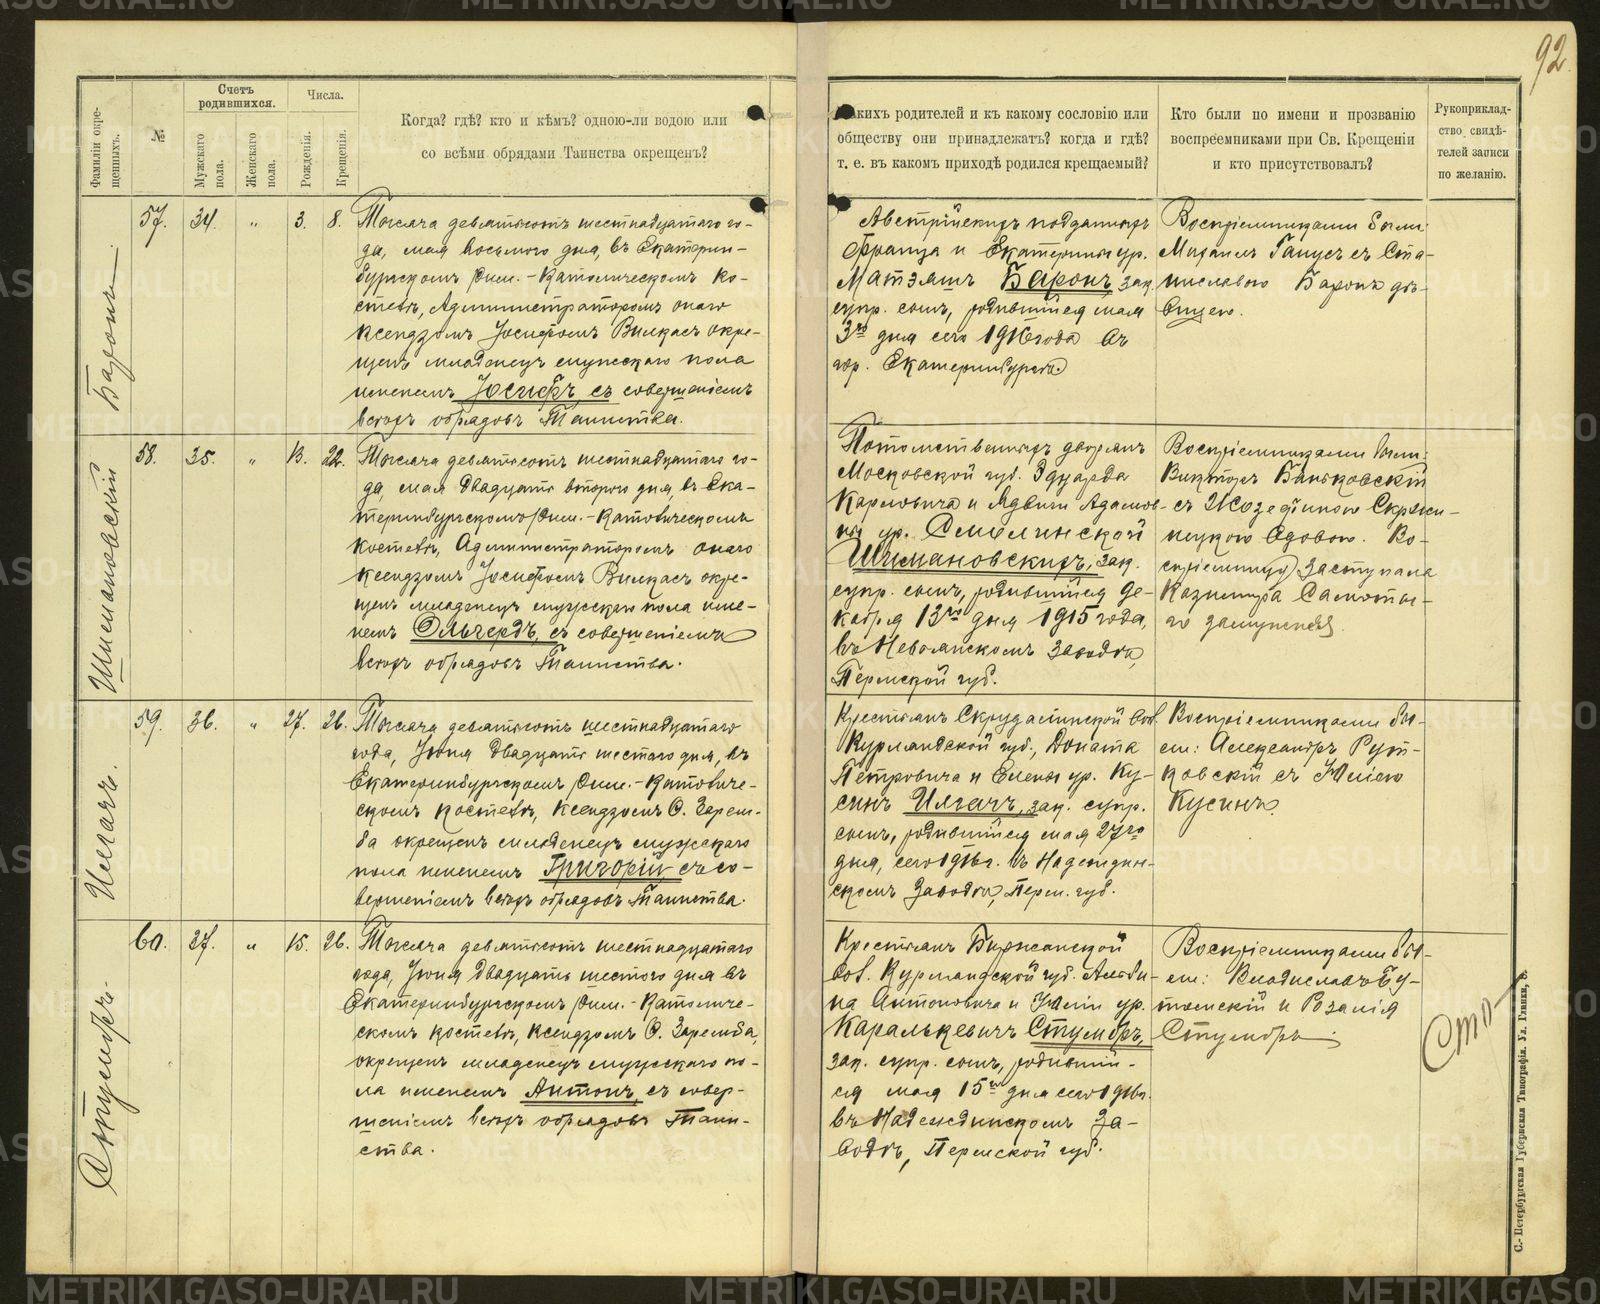 92
Фамиліи окре-
щенныхъ.
№
Счетъ
родившихся.
Мужскаго
пола.
Женскаго
пола.
Числа.
Рожденія.
Крещенія.
Когда? гдѣ? кто и кѣмъ? одною-ли водою или
со всѣми обрядами Таинства окрещенъ?
Какихъ родителей и къ какому сословію или
обществу они принадлежатъ? когда и гдѣ?
т. е. въ какомъ приходѣ родился крещаемый?
Кто были по имени и прозванію
воспреемниками при Св. Крещеніи
и кто присутствовалъ?
Рукоприклад-
ство свидѣ-
телей записи
по желанію.
Баронъ.
57. 34. " 3. 8.
Тысяча девятьсотъ шестнадцатаго го-
да, мая восьмого дня, въ Екатерин-
бургскомъ Рим.-Католическомъ ко-
стелѣ, Администраторомъ онаго
ксендзомъ Іосифомъ Вилкасъ окре-
щенъ младенецъ мужскаго пола
именемъ Іосифъ, съ совершеніемъ
всѣхъ обрядовъ Таинства.
Австрійскихъ подданныхъ
Франца и Екатерины ур.
Матзяшъ Баронъ, зак.
супр. сынъ, родившійся мая
3го дня сего 1916 года въ
гор. Екатеринбургѣ.
Воспріемниками были:
Михаилъ Ганусъ съ Ста-
ниславою Баронъ дѣ-
вицею.
Шимановскій
58. 35. " 13. 22.
Тысяча девятьсотъ шестнадцатаго го-
да, мая двадцать второго дня, въ Ека-
теринбургскомъ Рим.-Католическомъ
костелѣ, Администраторомъ онаго
ксендзомъ Іосифомъ Вилкасъ окре-
щенъ младенецъ мужскаго пола име-
немъ Ольгердъ, съ совершеніемъ
всѣхъ обрядовъ Таинства.
Потомственныхъ дворянъ
Московской губ. Эдуарда
Карловича и Ядвиги Адамов-
ны ур. Смѣлинской
Шимановскихъ, зак.
супр. сынъ, родившійся де-
кабря 13го дня 1915 года,
въ Невьянскомъ заводѣ,
Пермской губ.
Воспріемниками были:
Викторъ Баньковскій
съ Жозефиною Скржи-
нецкою вдовою. Во-
спріемницу заступала
Казимира
Илгачъ.
59. 36. " 27. 26.
Тысяча девятьсотъ шестнадцатаго
года, Іюня двадцать шестого дня, въ
Екатеринбургскомъ Рим.-Католиче-
скомъ костелѣ, Ксендзомъ О. Зарем-
ба окрещенъ младенецъ мужскаго
пола именемъ Григорій съ со-
вершеніемъ всѣхъ обрядовъ Таинства.
Крестьянъ Скрудалинской вол.
Курляндской губ., Доната
Петровича и Елены ур. Ку-
синъ Илгачъ, зак. супр.
сынъ, родившійся мая 27го
дня, сего 1916 г. въ Надеждин-
скомъ Заводѣ, Перм. губ.
Воспріемниками бы-
ли: Александръ Рут-
ковскій съ Юліею
Кусинъ.
Стумбръ.
60. 37. " 15. 26.
Тысяча девятьсотъ шестнадцатаго
года, Іюня двадцать шестого дня въ
Екатеринбургскомъ Рим.-Католиче-
скомъ костелѣ, Ксендзомъ О. Заремба,
окрещенъ младенецъ мужскаго по-
ла именемъ Антонъ, съ совер-
шеніемъ всѣхъ обрядовъ Таин-
ства.
Крестьянъ Биржанской
вол. Курляндской губ. Альби-
на Антоновича и Юліи ур.
Каралькевичъ Стумбръ,
зак. супр. сынъ, родивший-
ся мая 15го дня сего 1916 г.
въ Надеждинскомъ За-
водѣ, Пермской губ.
Воспріемниками бы-
ли: Владиславъ Бу-
тымскій и Розалія
Стумбръ
Сто
С.-Петербургская Губернская Типографія. Ул. Глинки, 8.
METRIKI.GASO-URAL.RU